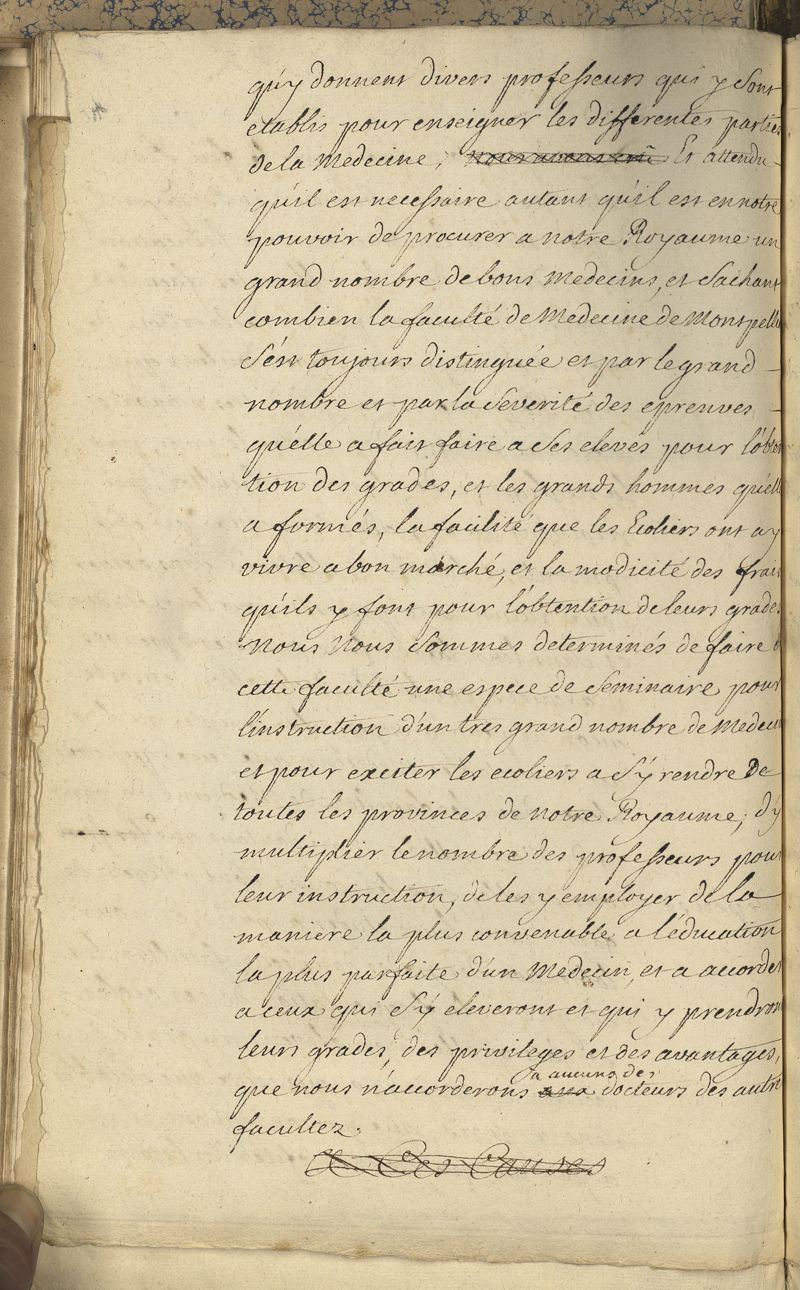 qu'y donnent divers professeurs qui y sont
etablis pour enseigner les differentes parties
de la medecine, nous avons crû Et attendu
qu'il est necessaire autant qu'il est en notre
pouvoir de procurer a notre Royaume un
grand nombre de bons medecins, et sachant
combien la faculté de Medecine de Montpelli
s'est toujours distinguée et par le grand
nombre et par la severité des epreuves
qu'elle a fait faire a ses elevés pour l'obten
tion des grades, et les grands hommes qu'elle
a formés, la facilité que les Ecoliers ont a y
vivre a bon marché, et la modicité des frais
qu'ils y font pour l'obtention de leurs grades
nous nous sommes determinés de faire
cette faculté une espece de seminaire pour
l'instruction d'un tres grand nombre de Medeci
et pour exciter les ecoliers a s'y rendre De
toutes les provinces de notre Royaume, d'y
multiplier le nombre des professeurs pour
leur instruction, de les y employer de la
maniere la plus convenable a l'éducation
la plus parfaite d'un Medecin, et a accorder
a ceux qui s'y eleveront et qui y prendront
leurs grades, des privileges et des avantages,
a aucuns des
que nous n'accorderons aux docteurs des autre
facultez.
Ces Causes